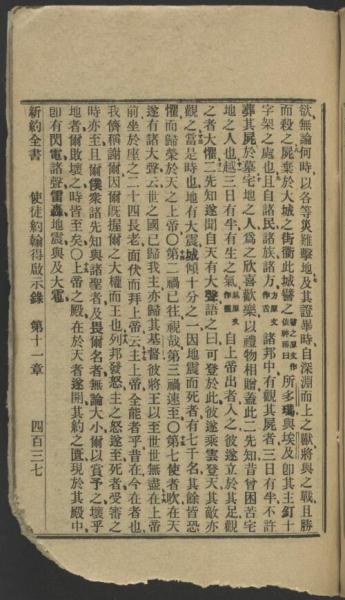 欲無論何時以各等災難擊地及其證畢時自深淵而上之獸將與之戰且勝
而殺之屍棄於大城之街衢此城譬之所多瑪與埃及卽其主釘十
字架之處也且自諸民諸族諸方諸邦中有觀其屍者三日有半不許
葬其屍於墓宅地之人爲之欣喜歡樂以禮物相贈蓋此二先知昔曾困苦宅
地之人也越三日有半有生之氣自上帝出者入之彼遂立於其足觀
之者大懼二先知遂聞自天有大聲語之曰可登於此彼遂乘雲登天其敵亦
觀之當是時也地有大震城傾十分之一因地震而死者有七千名其餘皆恐
懼而歸榮於天之上帝〇第二禍已往視哉第三禍速至〇第七使者吹在天
遂有諸大聲云世之國已歸我主亦歸其基督彼將王以至世世無盡在上帝
前坐於座之二十四長老面伏而拜上帝云主上帝全能者乎昔在今在者也
我儕稱謝爾因爾旣握爾之大權而王也列邦發怒主之怒遂至死者受審之
時亦至且爾僕衆諸先知與諸聖者及畏爾名者無論大小爾以賞予之壞乎
地者爾敗壞之時皆至矣〇上帝之殿在於天者遂開其約之匱現於其殿中
卽有閃電諸聲雷轟地震與及大雹
新約全書 使徒約翰得啟示錄 第十一章 四百三七